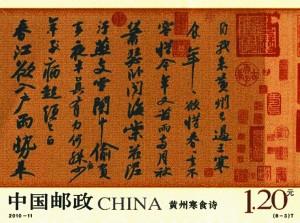 自我來黃州已過三寒
食年〻欲惜春春去不
容惜今年又苦雨兩月秋
蕭瑟卧聞海棠花泥
汙燕支雪闇中偷負
去夜半真有力何殊少
年子病起頭已白
春江欲入戶雨勢來
中国邮政 CHINA 黄州寒食诗 1.20元
2010-11